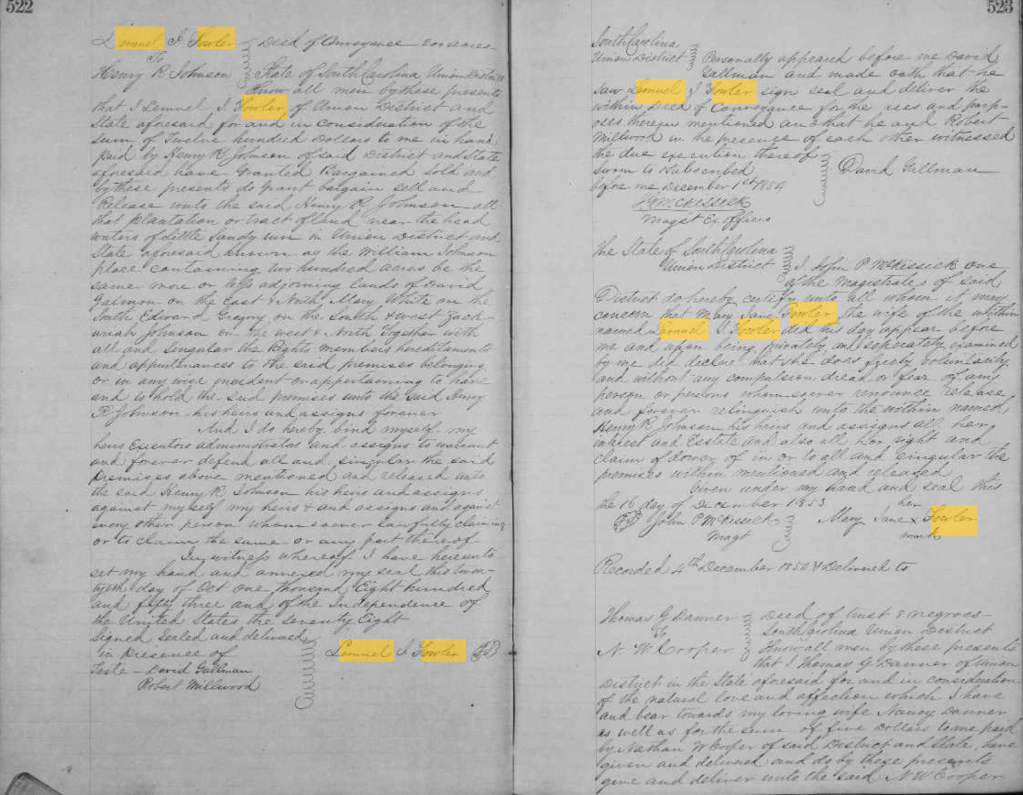 522
Lemuel J Fowler Deed of Conveyance 200 acres
To
Henry R Johnson State of South Carolina Union District
Know all men by these presents
that I Lemuel J. Fowler of Union District and
State aforesaid for and in consideration of the
sum of Twelve hundred Dollars to me in hand
paid by Henry R Johnson of said District and State
aforesaid have Granted Bargained Sold and
by these presents do Grant bargain sell and
Release unto the said Henry R. Johnson all
that plantation or tract of land near the head
waters of little Sandy run in Union District and
State aforesaid known as the William Johnson
place containing two hundred acres be the
same more or less adjoining lands of David
Galmon on the East & North Mary White on the
South Edward Gregory on the South & west Zach-
ariah Johnson on the west & North Together with
all and singular the Rights members hereditaments
and appurtenances to the said premises belonging
or in any wise incident or appertaining to have
and to hold the said premises unto the said Henry
R Johnson his heirs and assigns forever
And I do hereby bind myself my
heirs Executors administrators and assigns to warrant
and forever defend all and singular the said
premises above mentioned and released unto
the said Henry R. Johnson his heirs and assigns
against myself my heirs & and assigns and against
every other person whomsoever lawfully claiming
or to claim the same or any part thereof
In witness whereof I have hereunto
set my hand and annexed my seal this twen-
tyeth day of Oct one thousand Eight hundred
and fifty three and of the Independence of
the United States the seventy Eight
Signed Sealed and delivered
in Presence of Lemuel J Fowler
Teste David Gallman
Robert Millwood
523
South Carolina
Union District Personally appeared before me David
Gallman and made oath that he
saw Lemuel J Fowler sign seal and deliver the
within Deed of Conveyance for the uses and purp-
oses therein mentioned and that he and Robert
Millwood in the presence of each other witnessed
the due execution thereof
Sworn to Subscribed David Gallman
before me December 1st 1854
McKissick
Magst Ex officio
The State of South Carolina
Union District I, John P McKissick one
of the Magistrates of said
District do hereby certify unto all whom it may
concern that Mary Jane Fowler the wife of the within
named Lemuel J. Fowler did this day appear before
me and upon being privately and seperately examined
by me did declare that she does freely voluntarily
and without any compulsion dread or fear of any
person or persons whomsoever renounce release
and forever relinquish unto the within named
Henry R. Johnson his heirs and assigns all her
interest and Estate and also all her right and
claim of dower of in or to all and singular the
premises within mentioned and released
Given under my hand and seal this
the 16 day of December 1853 her
John P McKissick Mary Jane x Fowler
Magt mark
Recorded 4th December 1850 & Delivered to
Thomas G Danner Deed of trust 8 negroes
To South Carolina Union District
N W Cooper Know all men by these presents
that I Thomas G Danner of Union
District in the State aforesaid for and in consideration
of the natural love and affection which I have
and bear towards my loving wife Nancy Danner
as well as for the sum of five Dollars to me paid
by Nathan W Cooper of said District and State, have
given and delivered and do by these presents
give and deliver unto the said N W Cooper